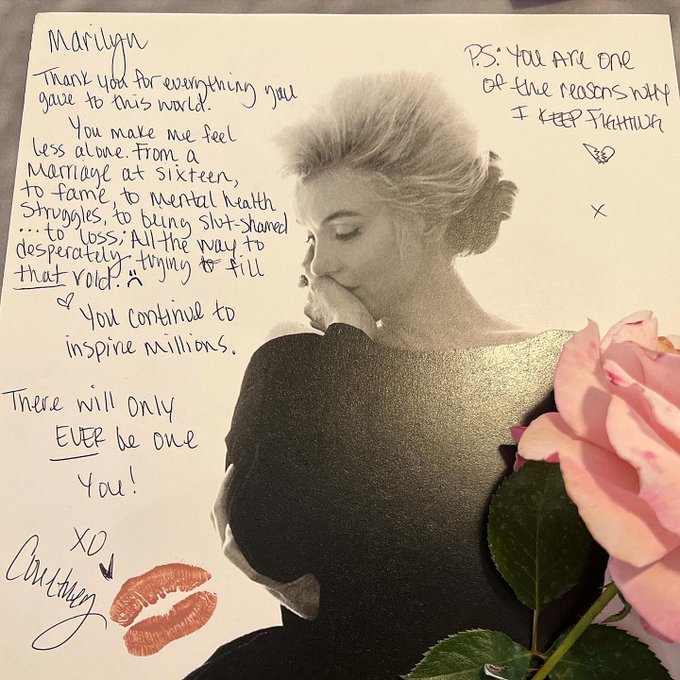 Marilyn
Thank you for everything you
gave to this world.
You make me feel
less alone. From a
Marriage at sixteen,
to fame, to mental health
struggles, to being slut-shamed
...to loss; All the way to
desperately trying to fill
that void. :(
You continue to
inspire millions.
There will only
EVER be one
You!
XO
Courtney
P.S: You ARE one
of the reasons why
I KEEP FIGHTING
X